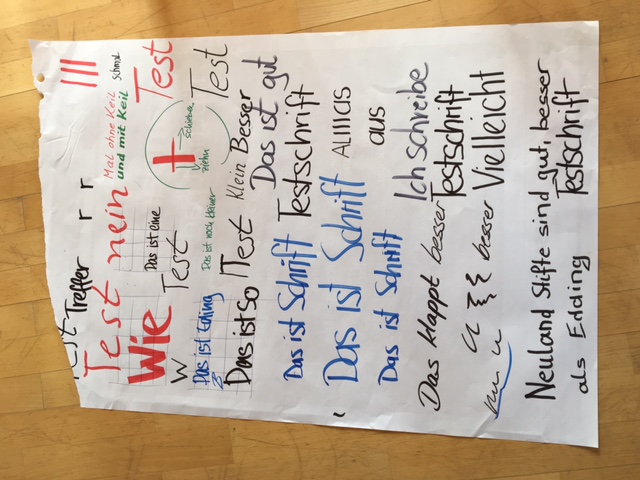 Test Treffer r r
Test nein
Mal ohne Keil schmal
und mit Keil
Wie
Das ist eine
Test
Test
schieben
ziehn
W
Das ist noch kleiner
Test
Das ist Edding
Das ist so Test Klein Besser
Das ist gut
Das ist Schrift Testschrift
Das ist Schrift
aus
Das ist Schrift
Ich schreibe
Das klappt besser Testschrift
besser Vielleicht
Neuland Stifte sind gut, besser
als Edding Testschrift